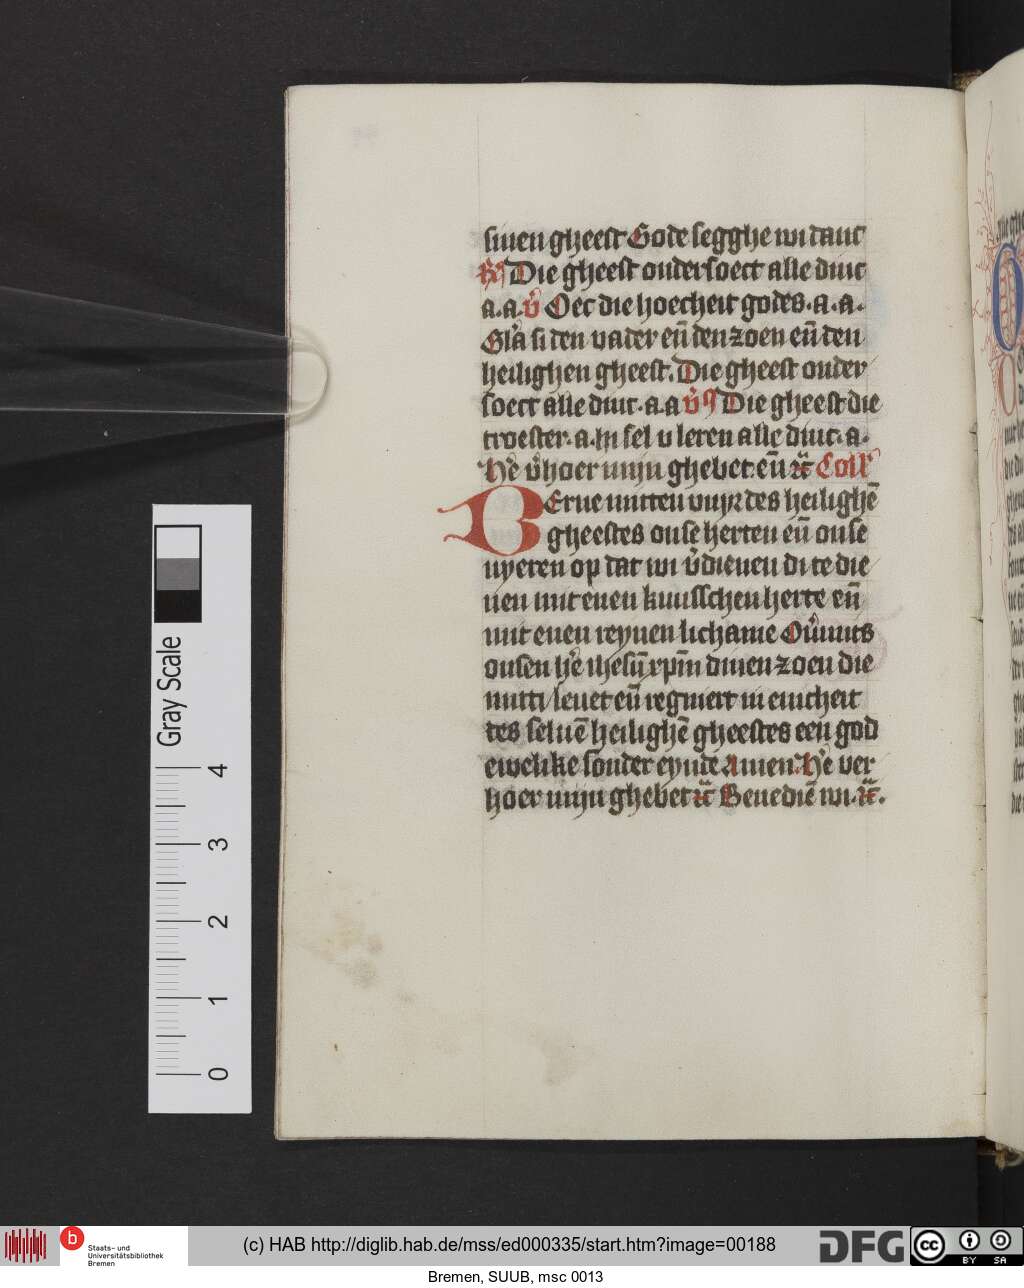 sinen gheest Gode segghe wi danc
Rꝰ Die gheest ondersoect alle dinc
a. a. v̄ Oec die hoecheit godes. a. a.
Gl'a si den vader en̄ den zoen en̄ den
heilighen gheest. Die gheest onder
soect alle dinc. a. a v̄s Die gheest die
troester. a. Hi sel v leren alle dinc. a.
He' v'hoer mijn ghebet. en̄ rc̄ Coll'
BErne mitten vuyr des heilighē
gheestes onse herten en̄ onse
nyeren op dat wi v'dienen di te die
nen mit enen kuusschen herte en̄
mit enen reynen lichame Ou'mits
onsen he' ihesū xpm̄ dinen zoen die
mitti leuet en̄ regniert in enicheit
des seluē heilighē gheestes een god
ewelike sonder eynde Amen. He' ver
hoer mijn ghebet rc̄ Benediē wi. rc̄.
Gray Scale
4
3
2
1
0
b Staats- und
Universitätsbibliothek
Bremen
(c) HAB http://diglib.hab.de/mss/ed000335/start.htm?image=00188
DFG
cc BY SA
Bremen, SUUB, msc 0013